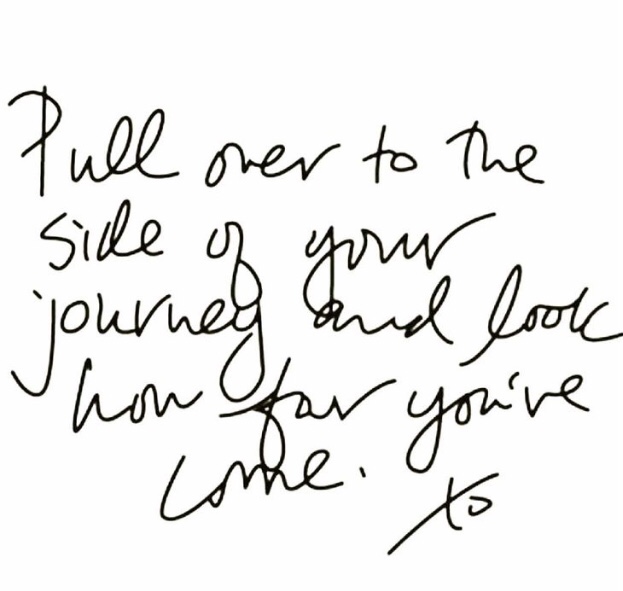 Pull over to the
side of your
journey and look
how far you've
come.
xo